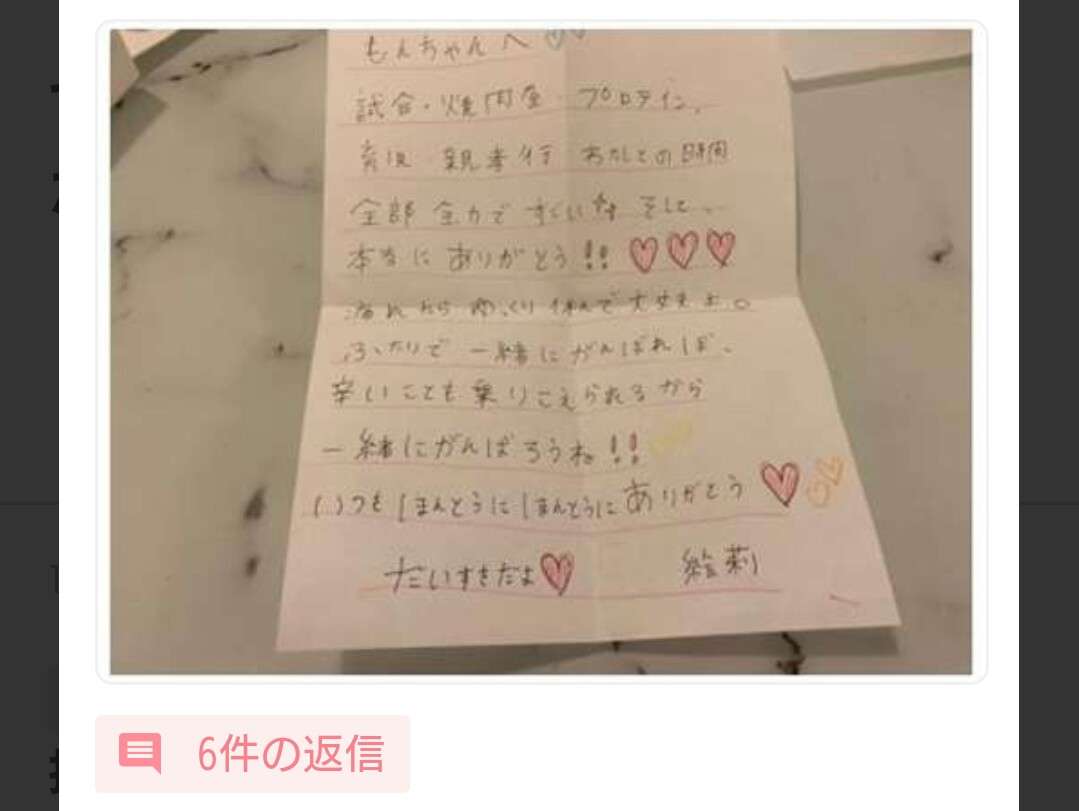 もんちゃんへ
試合・焼肉屋・プロテイン、
育児 親孝行 わたしとの時間
全部 全力で すごいな そして、
本当に ありがとう!!
疲れたら ゆっくり 休んで大丈夫よ。
ふたりで 一緒にがんばれば、
辛いことも乗りこえられるから
一緒にがんばろうね!!
いつもほんとうにほんとうにありがとう
だいすきだよ 絵莉
6件の返信